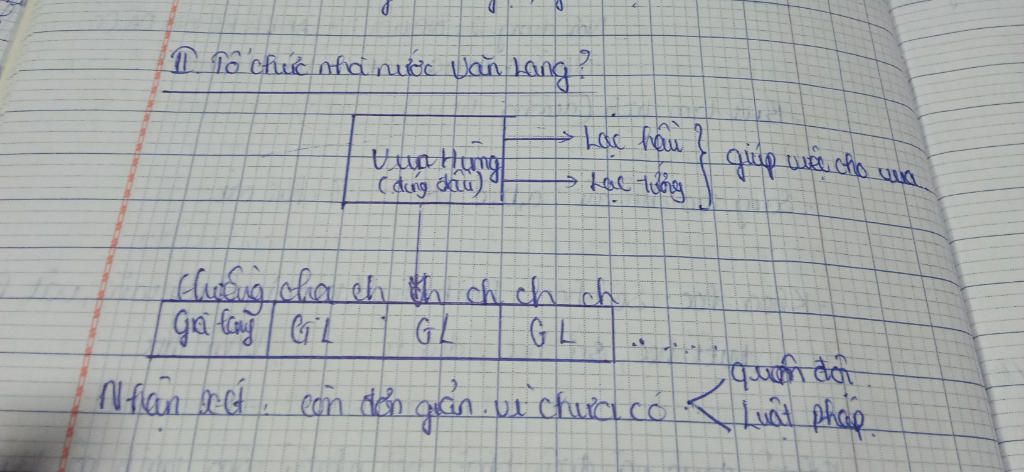 II Tổ chức nhà nước Văn Lang?
Vua Hùng
(đứng đầu)
Lạc hầu
Lạc tướng
giúp việc cho vua.
ch ch ch ch
Già làng GL GL GL ......
Nhận xét. còn đơn giản. vì chưa có
quân đội
Luật pháp.